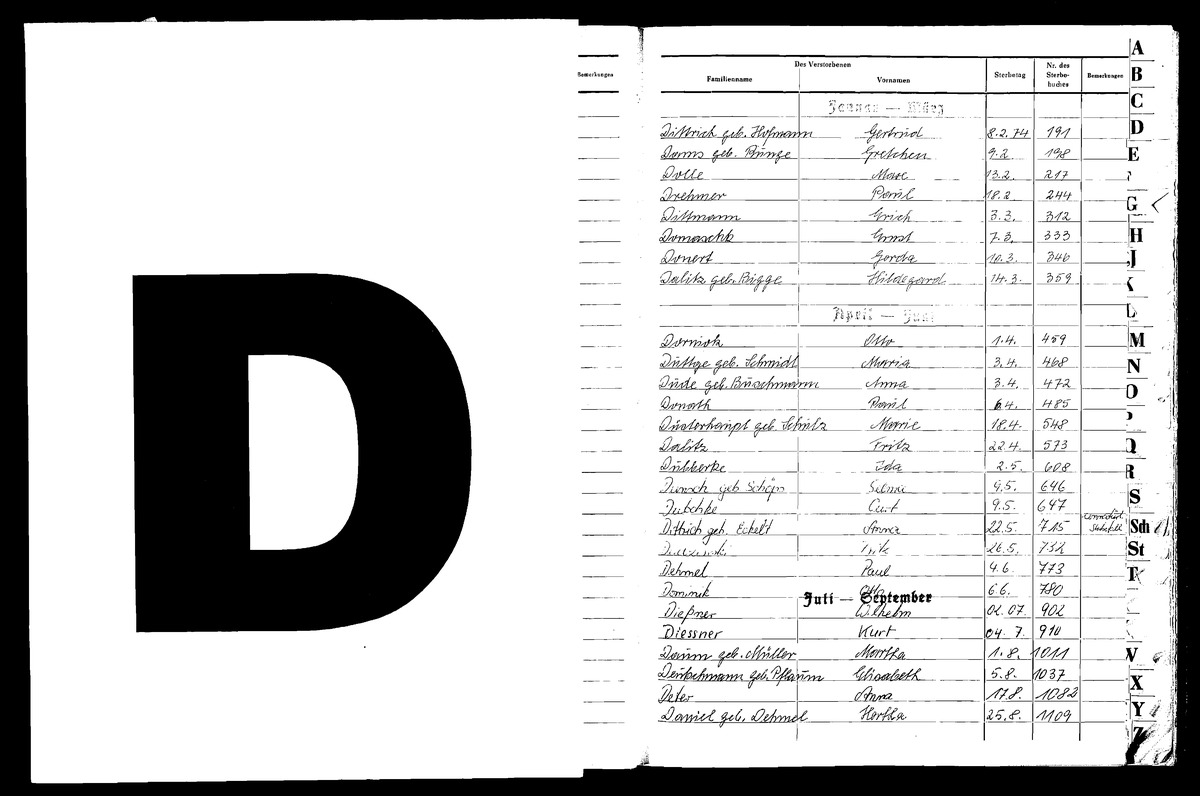 D
Bemerkungen
Des Verstorbenen
Familienname Vornamen Sterbetag Nr. des Sterbebuches Bemerkungen
Januar — März
Dittrich geb. Hofmann Gertrud 8.2.74 191
Dorms geb. Bunge Gretchen 9.2. 198
Dolle Marc 13.2. 217
Drehmer Paul 18.2. 244
Dittmann Erich 3.3. 312
Domaschk Ernst 7.3. 333
Donert Gerda 10.3. 346
Dalitz geb. Bigge Hildegard 14.3. 359
April — Juni
Otto 1.4. 459
Düttge geb. Schmidt Maria 3.4. 468
Dude geb. Buschmann Anna 3.4. 472
Donath Paul 6.4. 485
Dusterhaupt geb. Schulz Marie 18.4. 548
Dalitz Fritz 22.4. 573
Dubberke Ida 2.5. 608
geb Schön Selma 9.5. 646
Curt 9.5. 647
Dittrich geb. Eckelt Anna 22.5. 715
Fritz 26.5. 732
Dehmel Paul 4.6. 773
Dominik Otto 6.6. 780
Juli — September
Dießner Wilhelm 02.07. 902
Diessner Kurt 04. 7. 910
Daum geb. Müller Martha 1.8. 1011
Deutschmann geb. Pflaum Elisabeth 5.8. 1037
Deter Anna 17.8. 1082
Daniel geb. Dehmel Hertha 25.8. 1109
A
B
C
D
E
G
H
J
K
L
M
N
O
P
Q
R
S
Sch
St
T
V
X
Y
Z